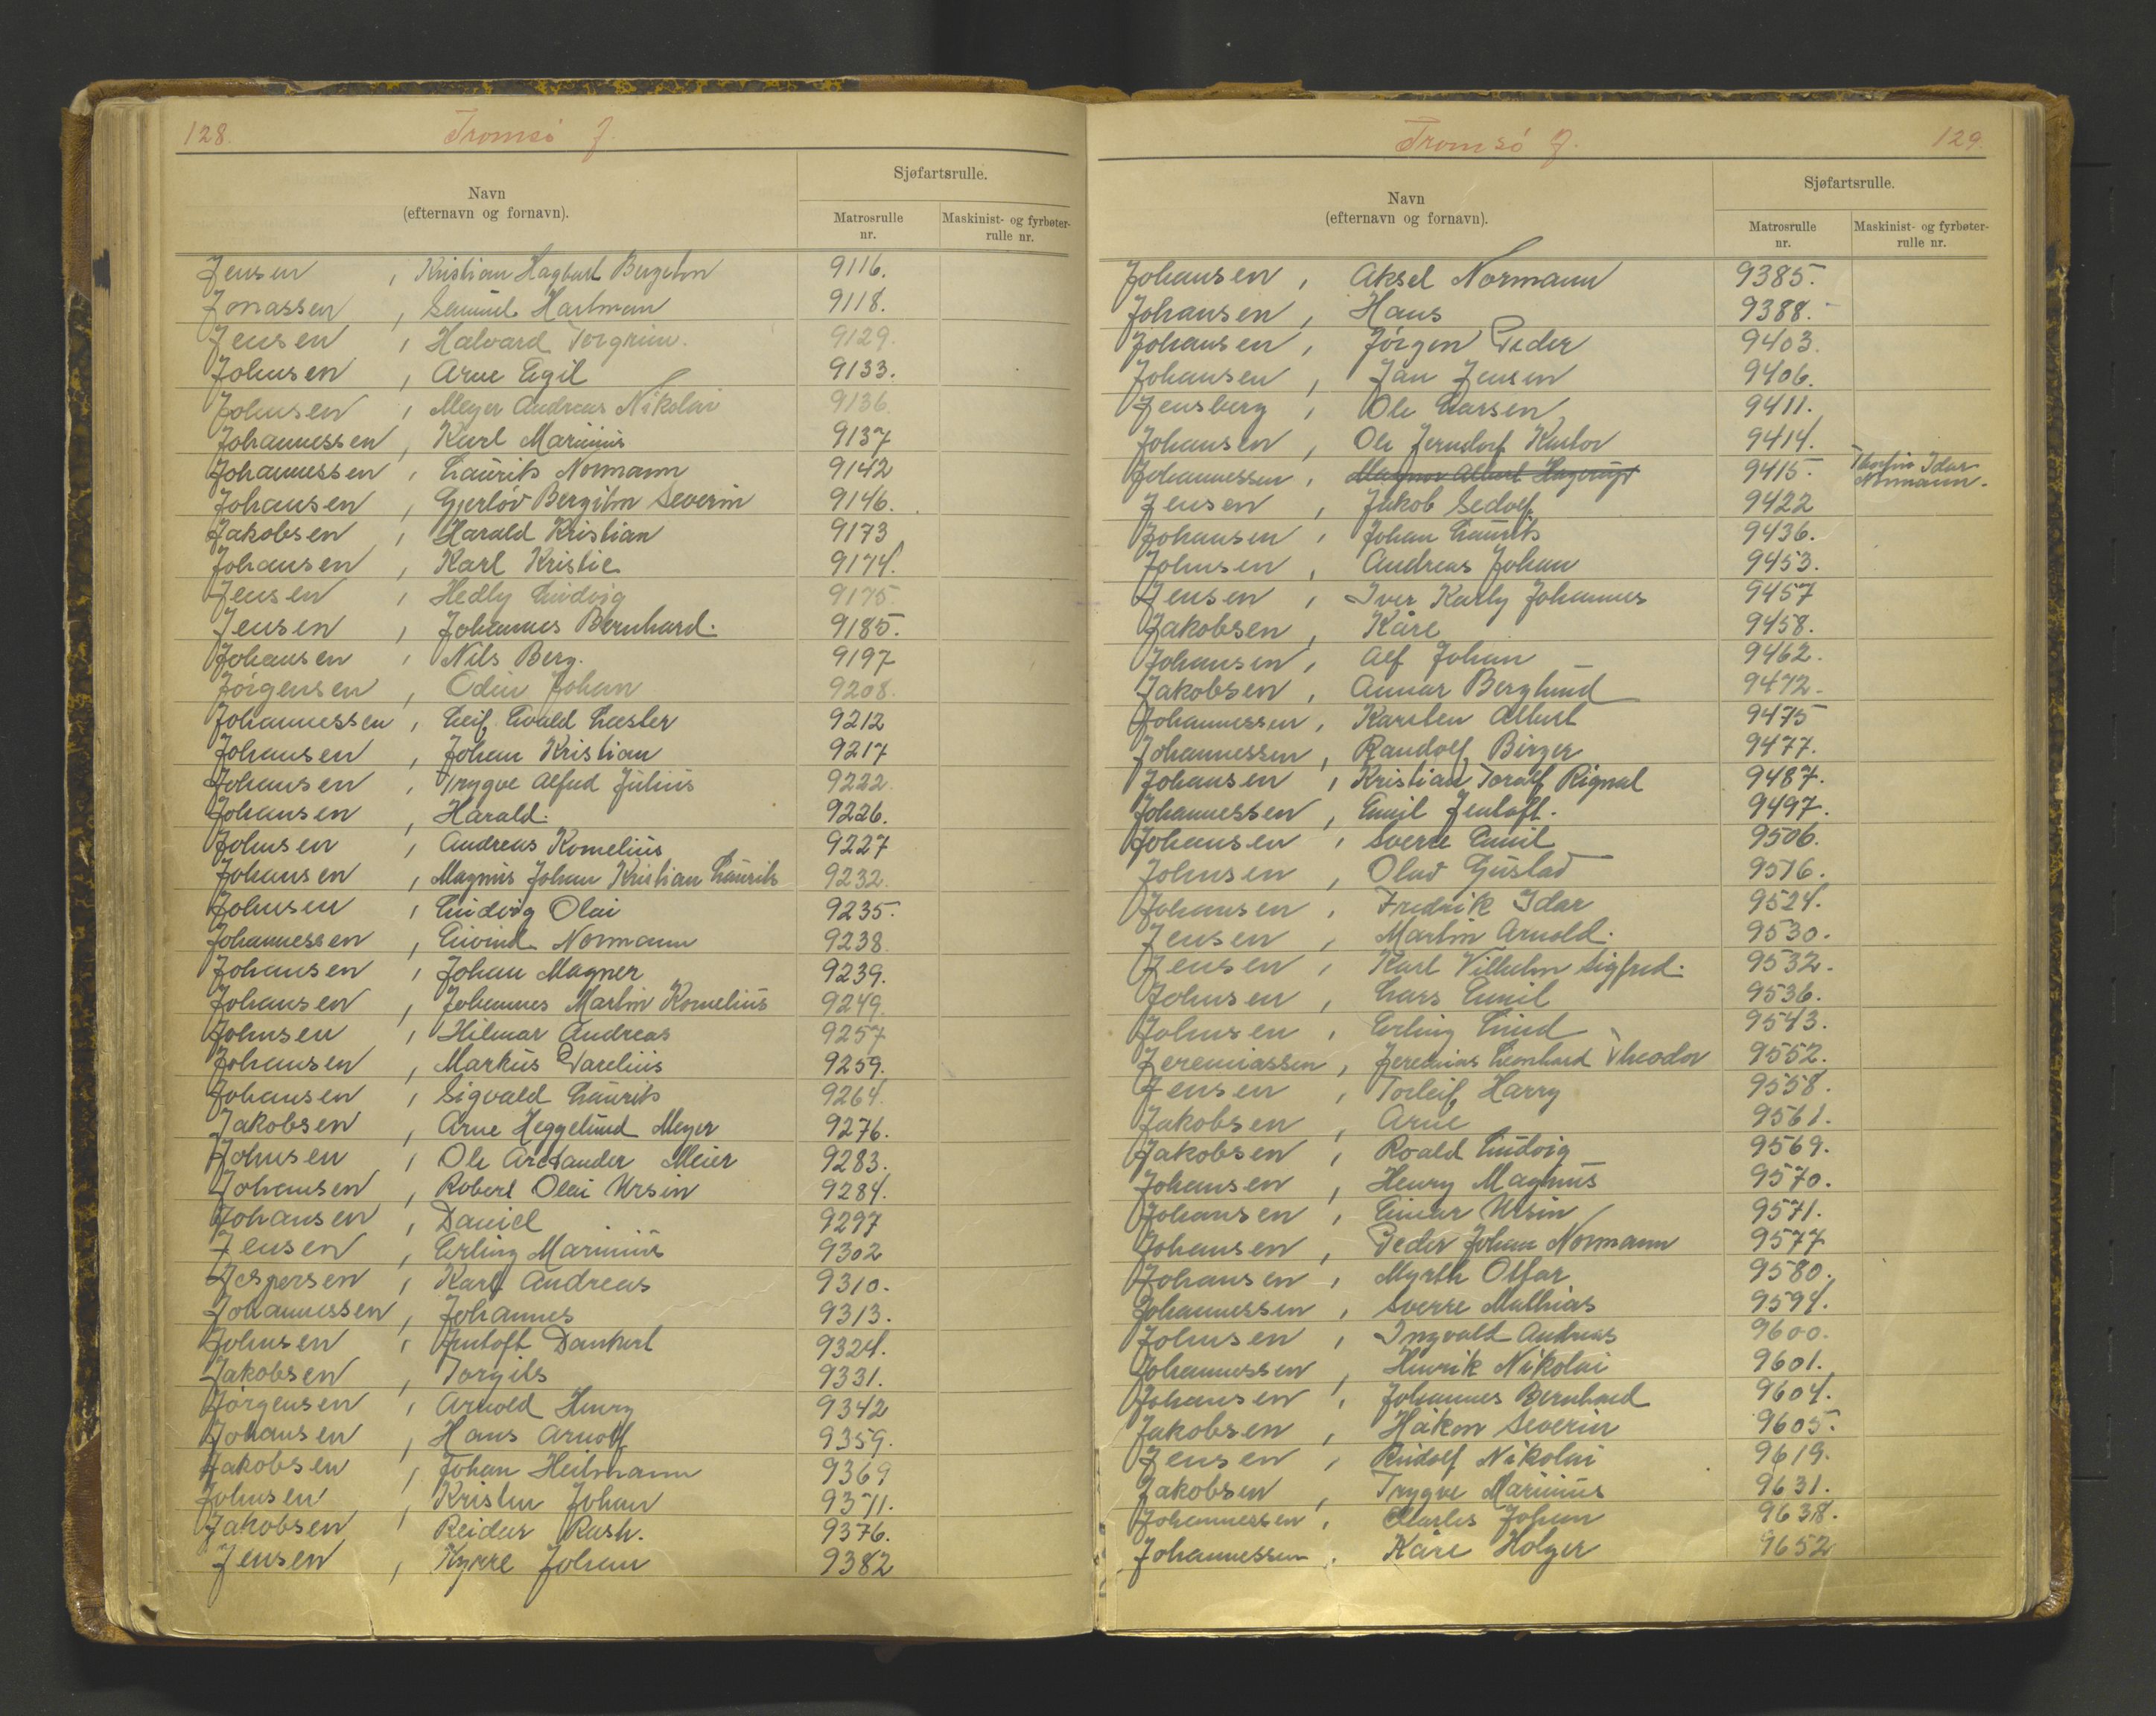 128. Tromsø J.
Sjøfartsrulle.
Navn
(efternavn og fornavn).
Matrosrulle
nr.
Maskinist- og fyrbøter-
rulle nr.
Jensen, Kristian Hagbart Bergeton 9116.
Jonassen, Samuel Hartman 9118.
Jensen, Halvard Torgrim. 9129.
Johnsen, Arne Egil 9133.
Johnsen, Meyer Andreas Nikolai 9136.
Johannessen, Karl Marinius 9137
Johannessen, Laurits Normann 9142
Johansen, Gjerløv Bergiton Severin 9146.
Jakobsen, Harald Kristian 9173
Johansen, Karl Kristie 9174.
Jensen, Hedly Ludvig 9175
Jensen, Johannes Bernhard. 9185.
Johansen, Nils Berg. 9197
Jørgensen, Odin Johan 9208.
Johannessen, Leif Evald Læster 9212
Johansen, Johan Kristian 9217
Johansen, Trygve Alfred Julius 9222.
Johansen, Harald. 9226.
Johnsen, Andreas Kornelius 9227
Johansen, Magnus Johan Kristian Laurits 9232.
Johnsen, Ludvig Olai 9235.
Johannessen, Eivind Normann 9238
Johansen, Johan Magner 9239.
Johansen, Johannes Martin Kornelius 9249.
Johnsen, Hilmar Andreas 9257
Johansen, Markus Parelius 9259.
Johansen, Sigvald Laurits 9264.
Jakobsen, Arne Heggelund Meyer 9276.
Johnsen, Ole Arctander Meier 9283.
Johansen, Robert Olai Ursin 9284.
Johansen, Daniel 9297
Jensen, Erling Marinius 9302
Jespersen, Karl Andreas 9310.
Johannessen, Johannes 9313.
Johnsen, Jentoft Dankert 9324.
Jakobsen, Torgils 9331.
Jørgensen, Arnold Henry 9342
Johansen, Hans Arnolf 9359.
Jakobsen, Johan Heilmann 9369
Johnsen, Kristen Johan 9371.
Jakobsen, Reidar Rash. 9376.
Jensen, Kyrre Johan 9382
Tromsø J. 129.
Sjøfartsrulle.
Navn
(efternavn og fornavn).
Matrosrulle
nr.
Maskinist- og fyrbøter-
rulle nr.
Johansen, Aksel Normann 9385.
Johansen, Hans 9388.
Johansen, Jørgen Peder 9403.
Johansen, Jan Jensen 9406.
Jensberg, Ole Larsen 9411.
Johansen, Ole Jerndorf Kastor 9414.
Johannessen, Magnor Albert Hagerup 9415. Thorfin Idar Normann.
Jensen, Jakob Sedolf 9422
Johansen, Johan Laurits 9436.
Johnsen, Andreas Johan 9453.
Jensen, Iver Karly Johannes 9457
Jakobsen, Kåre 9458.
Johansen, Alf Johan 9462.
Jakobsen, Annar Berglund 9472.
Johannessen, Karsten Albert 9475
Johannessen, Randolf Birger 9477.
Johansen, Kristian Toralf Rignal 9487.
Johannessen, Emil Jentoft. 9497.
Johansen, Sverre Emil 9506.
Johnsen, Olav Gustav 9516.
Johansen, Fredrik Idar 9524.
Jensen, Martin Arnold. 9530.
Jensen, Karl Vilhelm Sigfred. 9532.
Johnsen, Lars Emil 9536.
Johnsen, Erling Lind 9543.
Jeremiassen, Jeremias Leonhard Theodor 9552.
Jensen, Torleif Harry 9558.
Jakobsen, Arne 9561.
Jakobsen, Roald Ludvig 9569.
Johansen, Henry Magnus 9570.
Johansen, Einar Ursin 9571.
Johansen, Peder Johan Normann 9577
Johansen, Myrth Otfar 9580.
Johannessen, Sverre Mathias 9594.
Johnsen, Ingvald Andreas 9600.
Johannessen, Henrik Nikolai 9601.
Johansen, Johannes Bernhard 9604.
Jakobsen, Håkon Severin 9605.
Jensen, Rudolf Nikolai 9619.
Jakobsen, Trygve Marinius 9631.
Johannessen, Charles Johan 9638.
Johannessen, Kåre Holger 9652